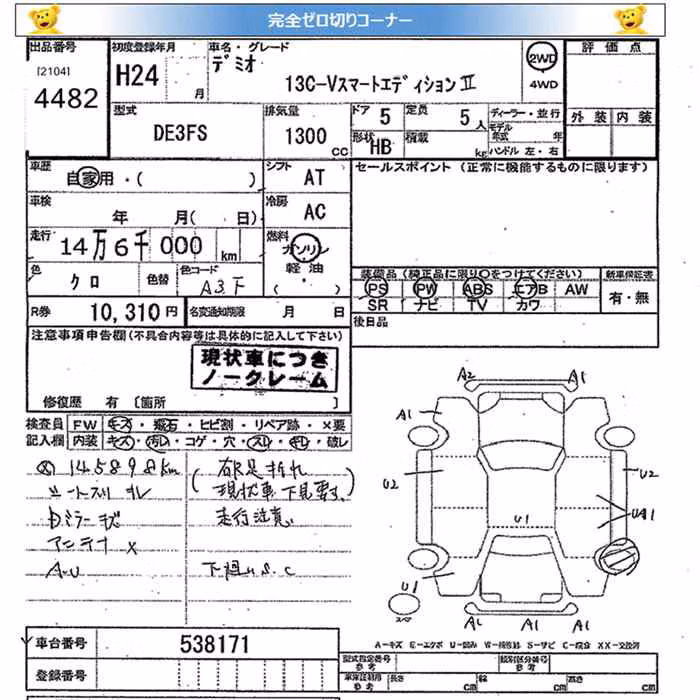 完全ゼロ切りコーナー
出品番号 初度登録年月 車名・グレード 評価点
[2104] デミオ 2WD
4482 H24 月 13C-VスマートエディションⅡ 4WD
型式 排気量 ドア 5 定員 5人 ディーラー・並行 外装 内装
DE3FS 1300cc 形状 HB 積載 kg モデル年式 年
ハンドル 左・右
車歴 自家用・( ) シフト AT セールスポイント (正常に機能するものに限ります)
車検 年 月( 日) 冷房 AC
走行 14万6千000km 燃料 ガソリン
軽油・( )
色 クロ 色替 色コード A3F 装備品(純正品に限り○をつけてください) 新車保証書
PS PW ABS エアB AW 有・無
SR ナビ TV カワ
R券 10,310円 名変通知期限 月 日 後日品
注意事項申告欄(不具合内容等は具体的に記入して下さい)
現状車につき
ノークレーム
修復歴 有 [箇所 ]
検査員 FW キズ・飛石・ヒビ割・リペア跡・×要
記入欄 内装 キズ・汚れ・コゲ・穴・スレ・キレ・破レ
145898km
シートスリ キレ 現状車下見要す
ミラーキズ 走行注意
アンテナ ×
A.U 下廻U.S.C
A2 A1
A1
U2 U2
U1 UA1
U1
A1 A1 A1
スペア
A-キズ E-エクボ U-凹み W-補修跡 S-サビ C-腐食 XX-交換済
車台番号 538171
型式指定番号 参考 類別区分番号 参考
登録番号 車庫証明用 参考 長さ cm 幅 cm 高さ cm